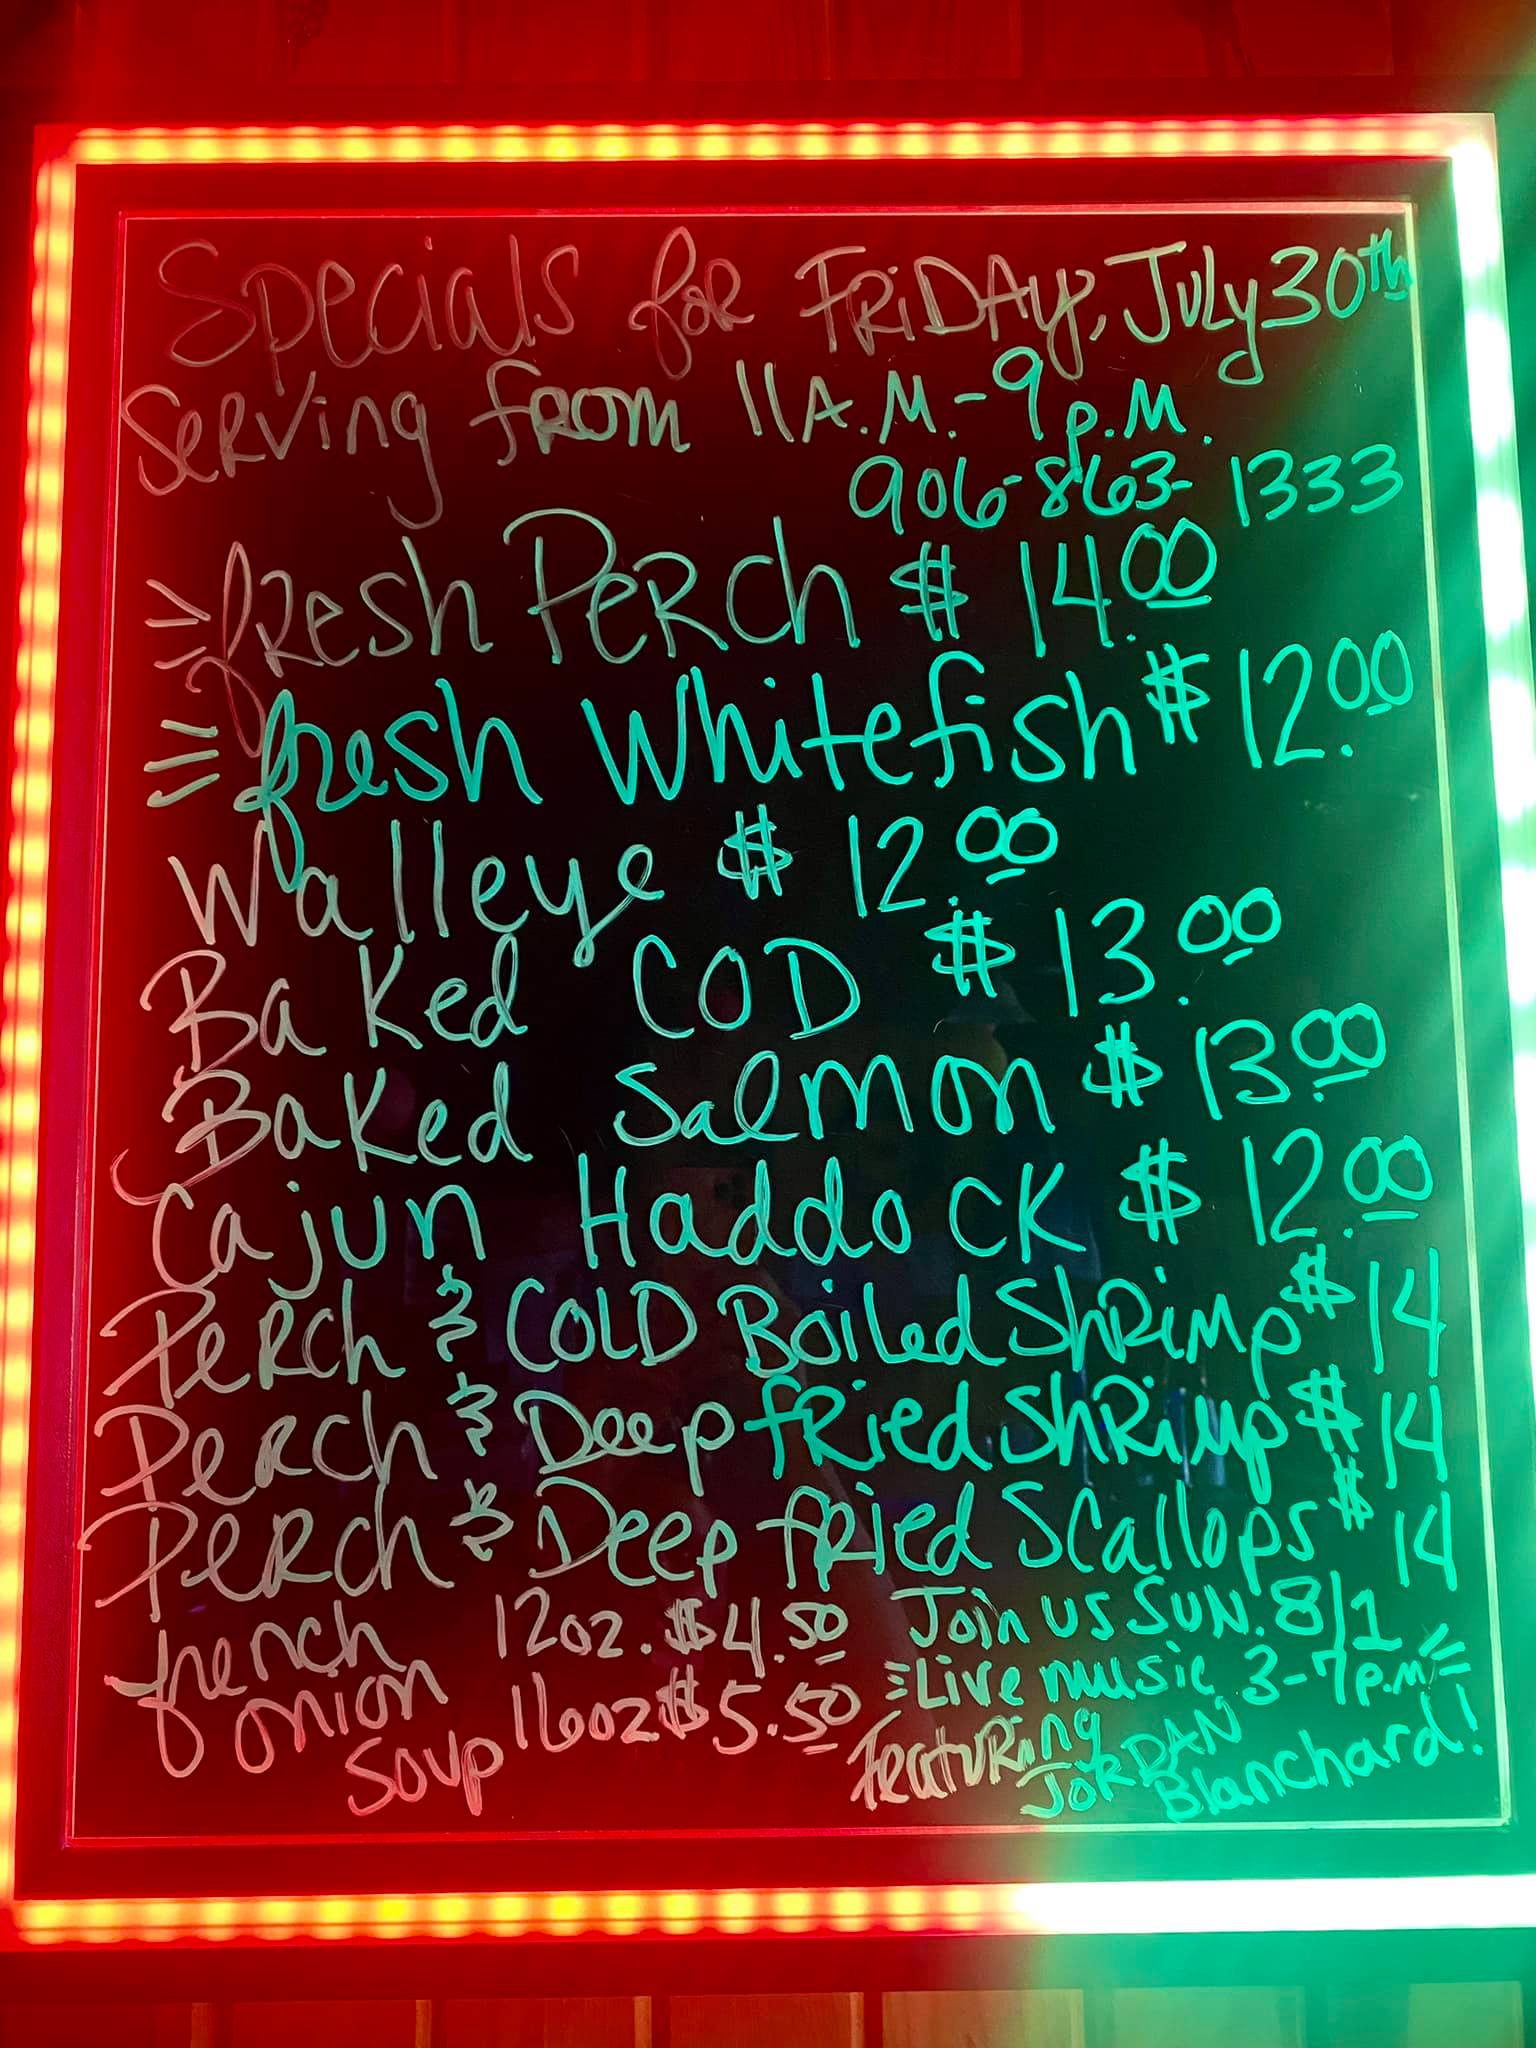 Specials for Friday, July 30th
Serving from 11 A.M. - 9 p.M.
906-863-1333
fresh Perch $ 14.00
fresh Whitefish $ 12.00
Walleye $ 12.00
Baked COD $ 13.00
Baked Salmon $ 13.00
Cajun Haddock $ 12.00
Perch & COLD Boiled Shrimp $ 14
Perch & Deep fried Shrimp $ 14
Perch & Deep fried Scallops $ 14
french onion Soup
12oz. $4.50
16oz $5.50
Join us SUN. 8/1
Live music 3-7p.m.
Featuring
JORDAN
Blanchard!